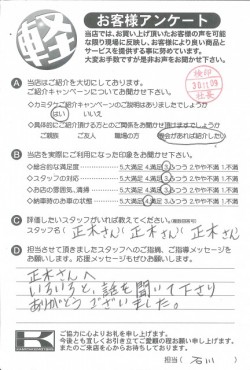 軽
お客様アンケート
当店では、お買い上げ頂いたお客様の声を可能
な限り現場に反映し、お客様により良い商品と
サービスを提供する事に努めています。
大変お手数ですが是非お声をお聞かせ下さい。
検印
30.11.09
社長
A 当店はご紹介を大切にしております。
ご紹介キャンペーンについてお聞かせ下さい。
◇カミタケご紹介キャンペーンのご説明はありましたでしょうか
はい いいえ
◇具体的にご紹介頂ける方との関係をお聞かせ頂けますでしょうか
ご親族 ご友人 職場の方 機会があれば紹介したい
B 当店を実際にご利用になった印象をお聞かせ下さい。
◇総合的な満足度 5.大満足 4.満足 3.ふつう 2.やや不満 1.不満
◇スタッフの対応 5.大満足 4.満足 3.ふつう 2.やや不満 1.不満
◇お店の雰囲気、清掃 5.大満足 4.満足 3.ふつう 2.やや不満 1.不満
◇納車時のお車の状態 5.大満足 4.満足 3.ふつう 2.やや不満 1.不満
C 評価したいスタッフがいれば教えてください。
スタッフ名( 正木さん )( 正木さん )( 正木さん )
D 担当させて頂きましたスタッフへのご指摘、ご指導メッセージを
お願いします。応援メッセージもぜひお願いします。
正木さんへ
いろいろと、話を聞いて下さり
ありがとうございました。
K
ご協力に心よりお礼を申し上げます。
今後とも宜しくお引き立てご愛顧の程お願い申し上げます。
またのご来店を心からお待ちしております。
担当( 石川 )